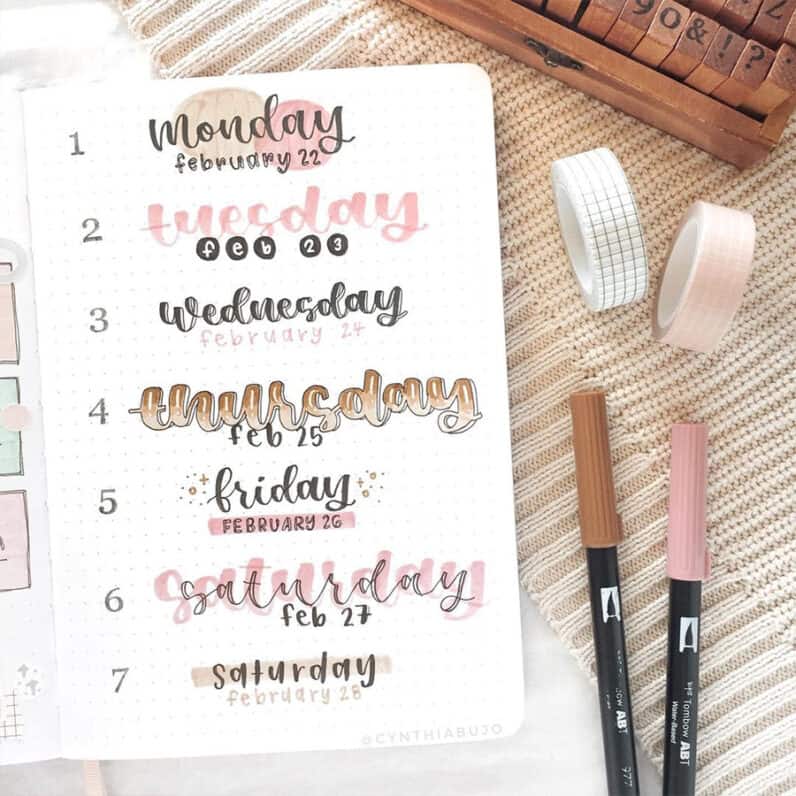 90&!?Z
1 monday
february 22
2 tuesday
feb 23
3 wednesday
february 24
4 thursday
feb 25
5 friday
FEBRUARY 26
6 saturday
feb 27
7 saturday
february 28
@CYNTHIABUJO
ABT
977
Tombow ABT
Water-Based